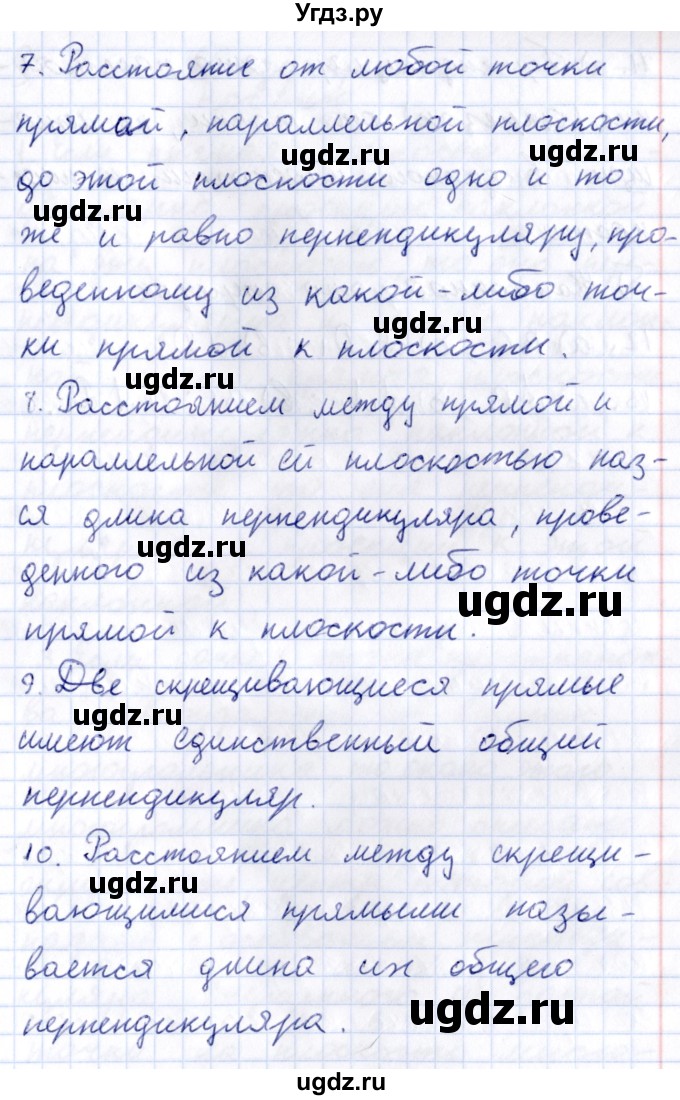 Угдз.ру
7. Расстояние от любой точки
прямой, параллельной плоскости,
ugdz.ru ugdz.ru
до этой плоскости одно и то
ugdz.ru
же и равно перпендикуляру, про-
веденному из какой-либо точ-
ugdz.ru
ки прямой к плоскости.
ugdz.ru
8. Расстоянием между прямой и
параллельной ей плоскостью наз-
ся длина перпендикуляра, прове-
ugdz.ru
денного из какой-либо точки
ugdz.ru
прямой к плоскости.
9. Две скрещивающиеся прямые
ugdz.ru
имеют единственный общий
перпендикуляр.
10. Расстоянием между скрещи-
ugdz.ru
вающимися прямыми назы-
вается длина их общего
перпендикуляра.
ugdz.ru
ugdz.ru